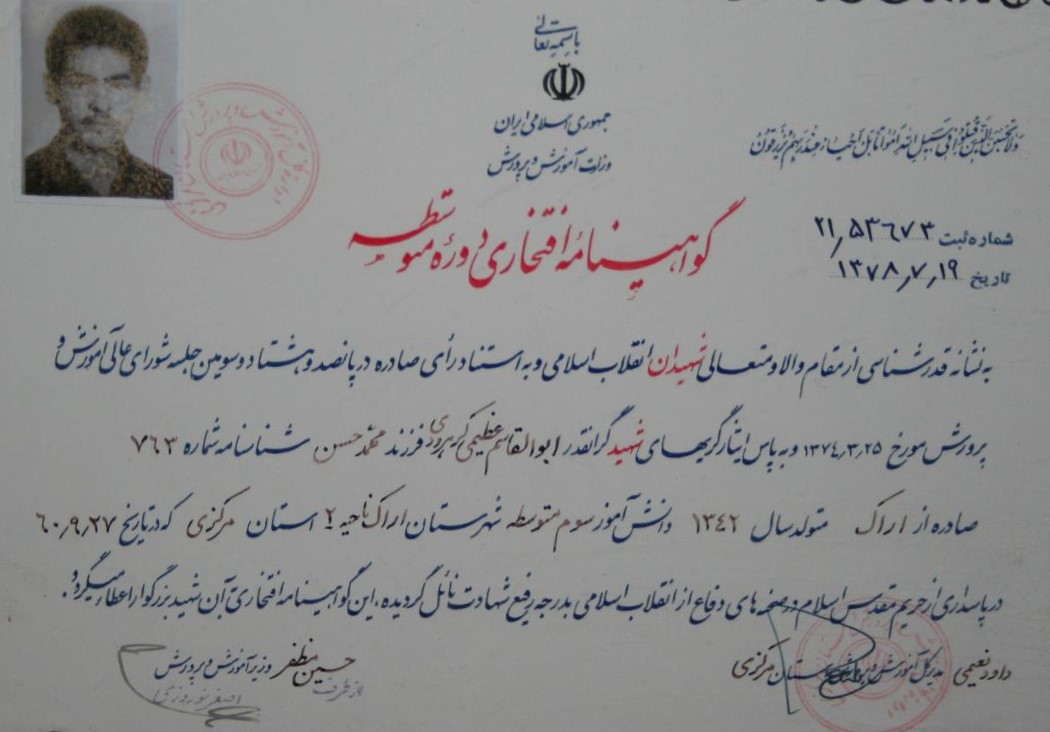 باسمه تعالی
جمهوری اسلامی ایران
وزارت آموزش و پرورش
ولا تحسبن الذین قتلوا فی سبیل الله امواتا بل احیاء عند ربهم یرزقون
شماره ثبت ۲۱٫۵۳۶۷۳
تاریخ ۱۳۷۸٫۷٫۱۹
گواهینامه افتخاری دوره متوسطه
به نشانه قدرشناسی از مقام والا و متعالی شهیدان انقلاب اسلامی و به استناد رأی صادره در پانصد و هشتاد و سومین جلسه شورای عالی آموزش و
پرورش مورخ ۱۳۷۴٫۳٫۲۵ و به پاس ایثارگریهای شهید گرانقدر ابوالقاسم عظیمی کرهرودی فرزند محمد حسن شناسنامه شماره ۷۶۳
صادره از اراک متولد سال ۱۳۴۲ دانش آموز سوم متوسطه شهرستان اراک ناحیه ۲ استان مرکزی که در تاریخ ۶۰٫۹٫۲۷
در پاسداری از حریم مقدس اسلام در صحنه های دفاع از انقلاب اسلامی بدرجه رفیع شهادت نائل گردیده، این گواهینامه افتخاری به آن شهید بزرگوار اعطا میگردد.
داود نعیمی مدیرکل آموزش و پرورش استان مرکزی
حسین مظفر وزیر آموزش و پرورش
از طرف اصغر نوروزی